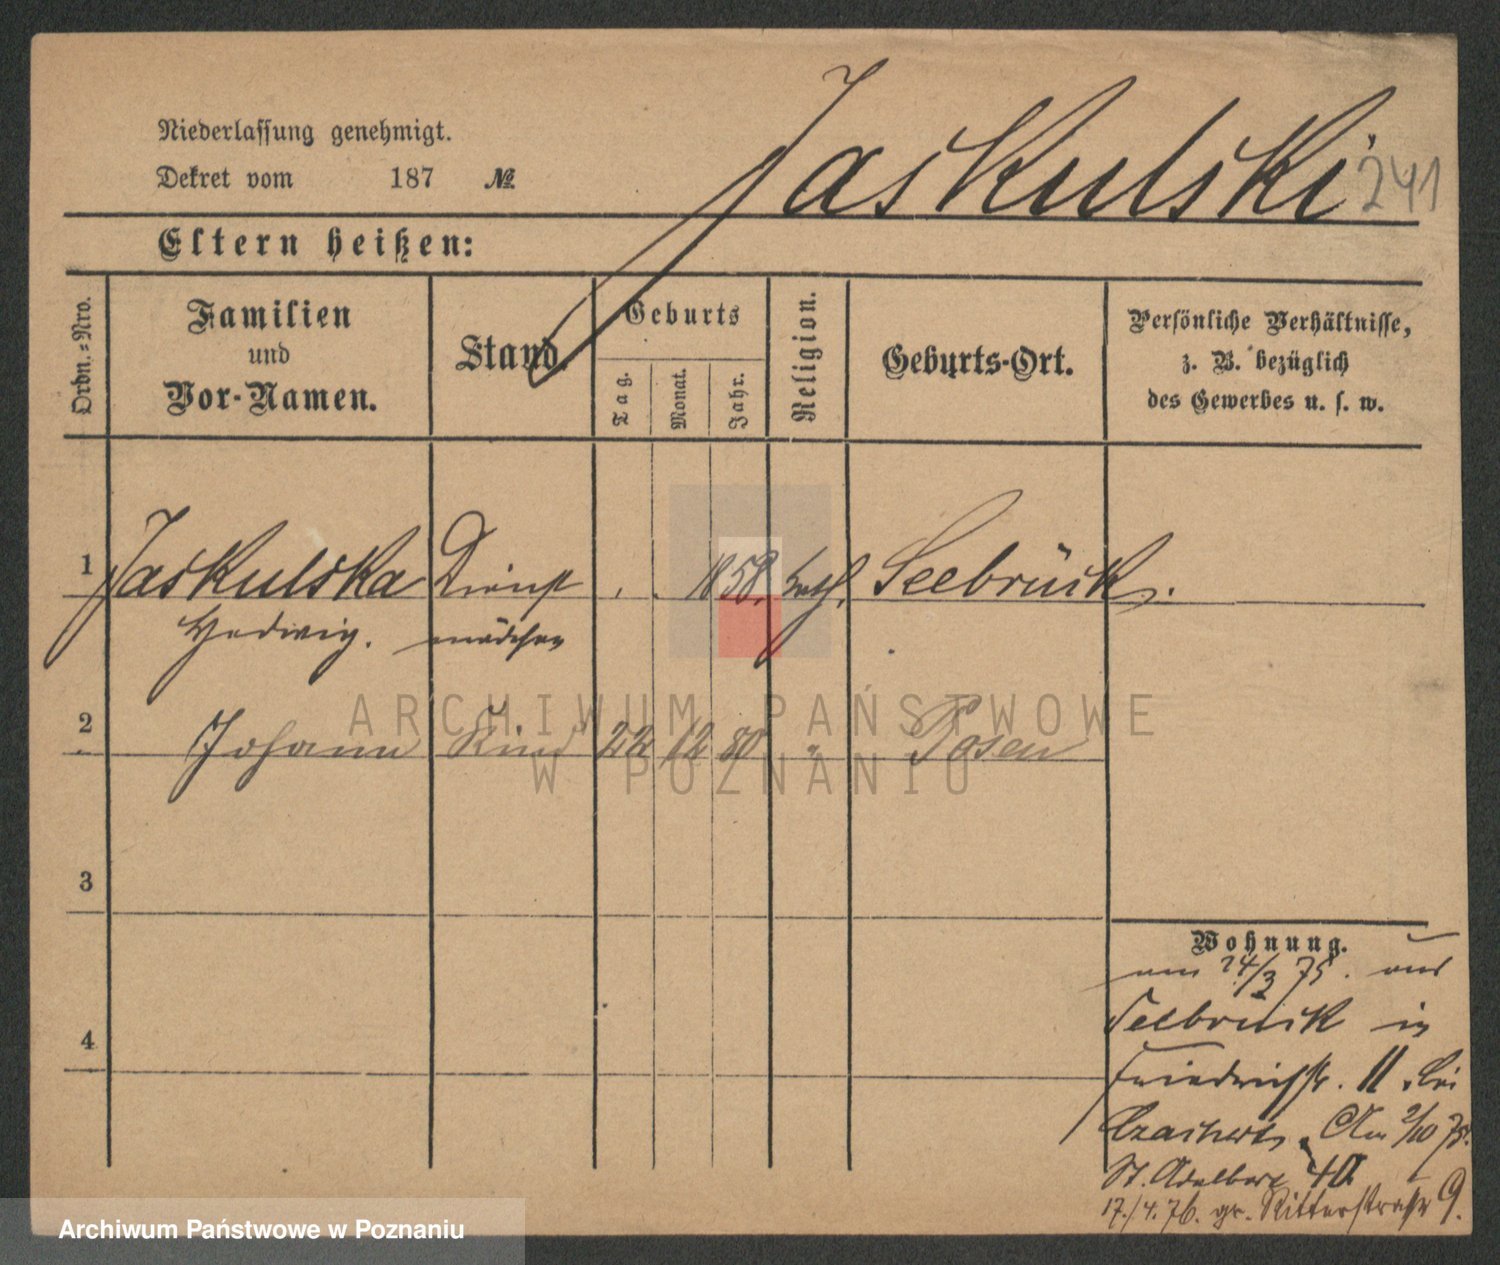 Niederlassung genehmigt.
Dekret vom 187 №
Jaskulski
241
Eltern heißen:
Ordn.-Nro.
Familien
und
Vor-Namen.
Stand.
Geburts
Tag.
Monat.
Jahr.
Religion.
Geburts-Ort.
Persönliche Verhältnisse,
z. B. bezüglich
des Gewerbes u. s. w.
1 Jaskulska Dienst 1858. kath. Seebrück.
Hedwig. mädchen
2 Johann Kind 22 12 80 " Posen
3
4
Wohnung.
am 24/3 75. aus
Seebrück in
Friedrichstr. 11 bei
Am 2/10 75.
St. Adalbert 40
17./4. 76. gr. Ritterstraße 9.
ARCHIWUM PAŃSTWOWE
W POZNANIU
Archiwum Państwowe w Poznaniu